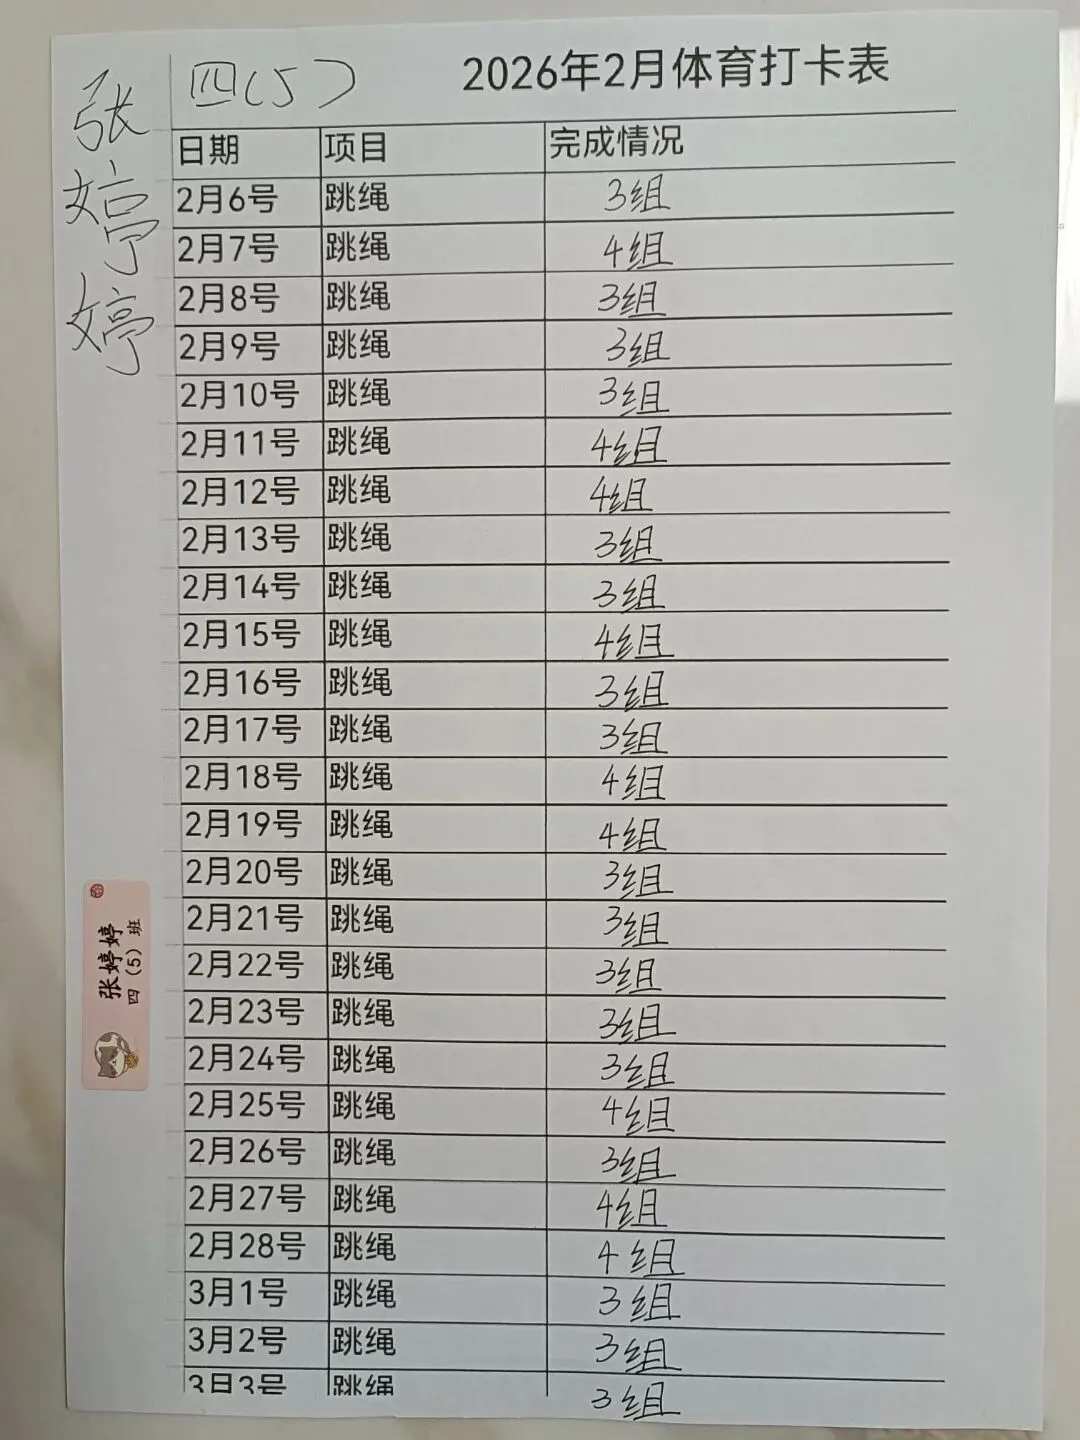 张婷婷
四(5)
2026年2月体育打卡表
日期 项目 完成情况
2月6号 跳绳 3组
2月7号 跳绳 4组
2月8号 跳绳 3组
2月9号 跳绳 3组
2月10号 跳绳 3组
2月11号 跳绳 4组
2月12号 跳绳 4组
2月13号 跳绳 3组
2月14号 跳绳 3组
2月15号 跳绳 4组
2月16号 跳绳 3组
2月17号 跳绳 3组
2月18号 跳绳 4组
2月19号 跳绳 4组
2月20号 跳绳 3组
2月21号 跳绳 3组
2月22号 跳绳 3组
2月23号 跳绳 3组
2月24号 跳绳 3组
2月25号 跳绳 4组
2月26号 跳绳 3组
2月27号 跳绳 4组
2月28号 跳绳 4组
3月1号 跳绳 3组
3月2号 跳绳 3组
3月3号 跳绳 3组
张婷婷
四（5）班